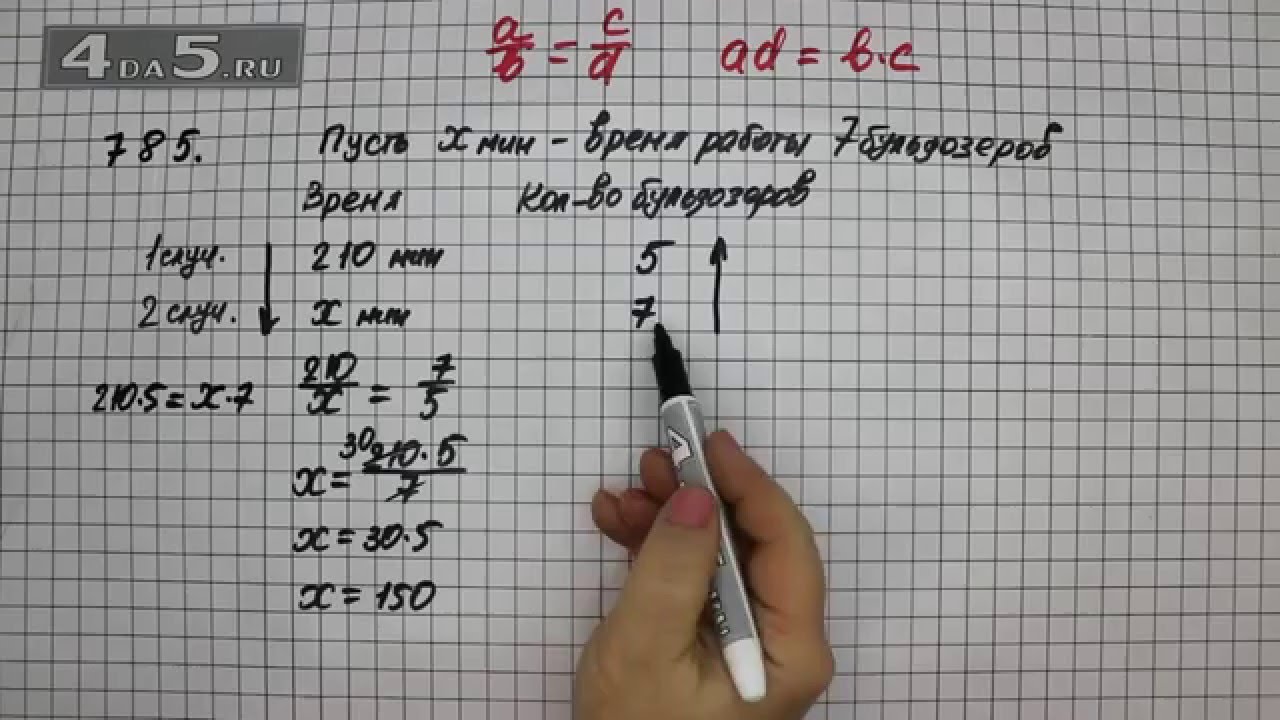 4DA5.RU
a/b = c/d ad = b·c
785. Пусть x мин - время работы 7 бульдозеров
Время Кол-во бульдозеров
1 случ. 210 мин 5
2 случ. x мин 7
210·5=x·7 210/x = 7/5
x= 30 210·5/7
x=30·5
x=150